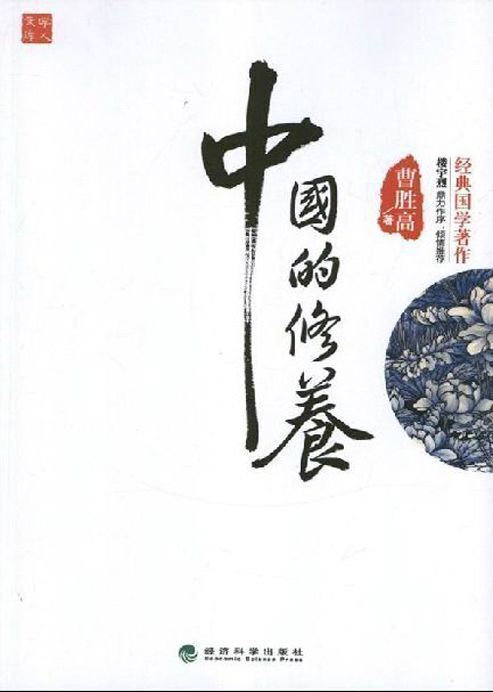 学人
文库
中國的修養
曹胜高
著
经典国学著作
楼宇烈 鼎力作序·倾情推荐
经济科学出版社
Economic Science Press